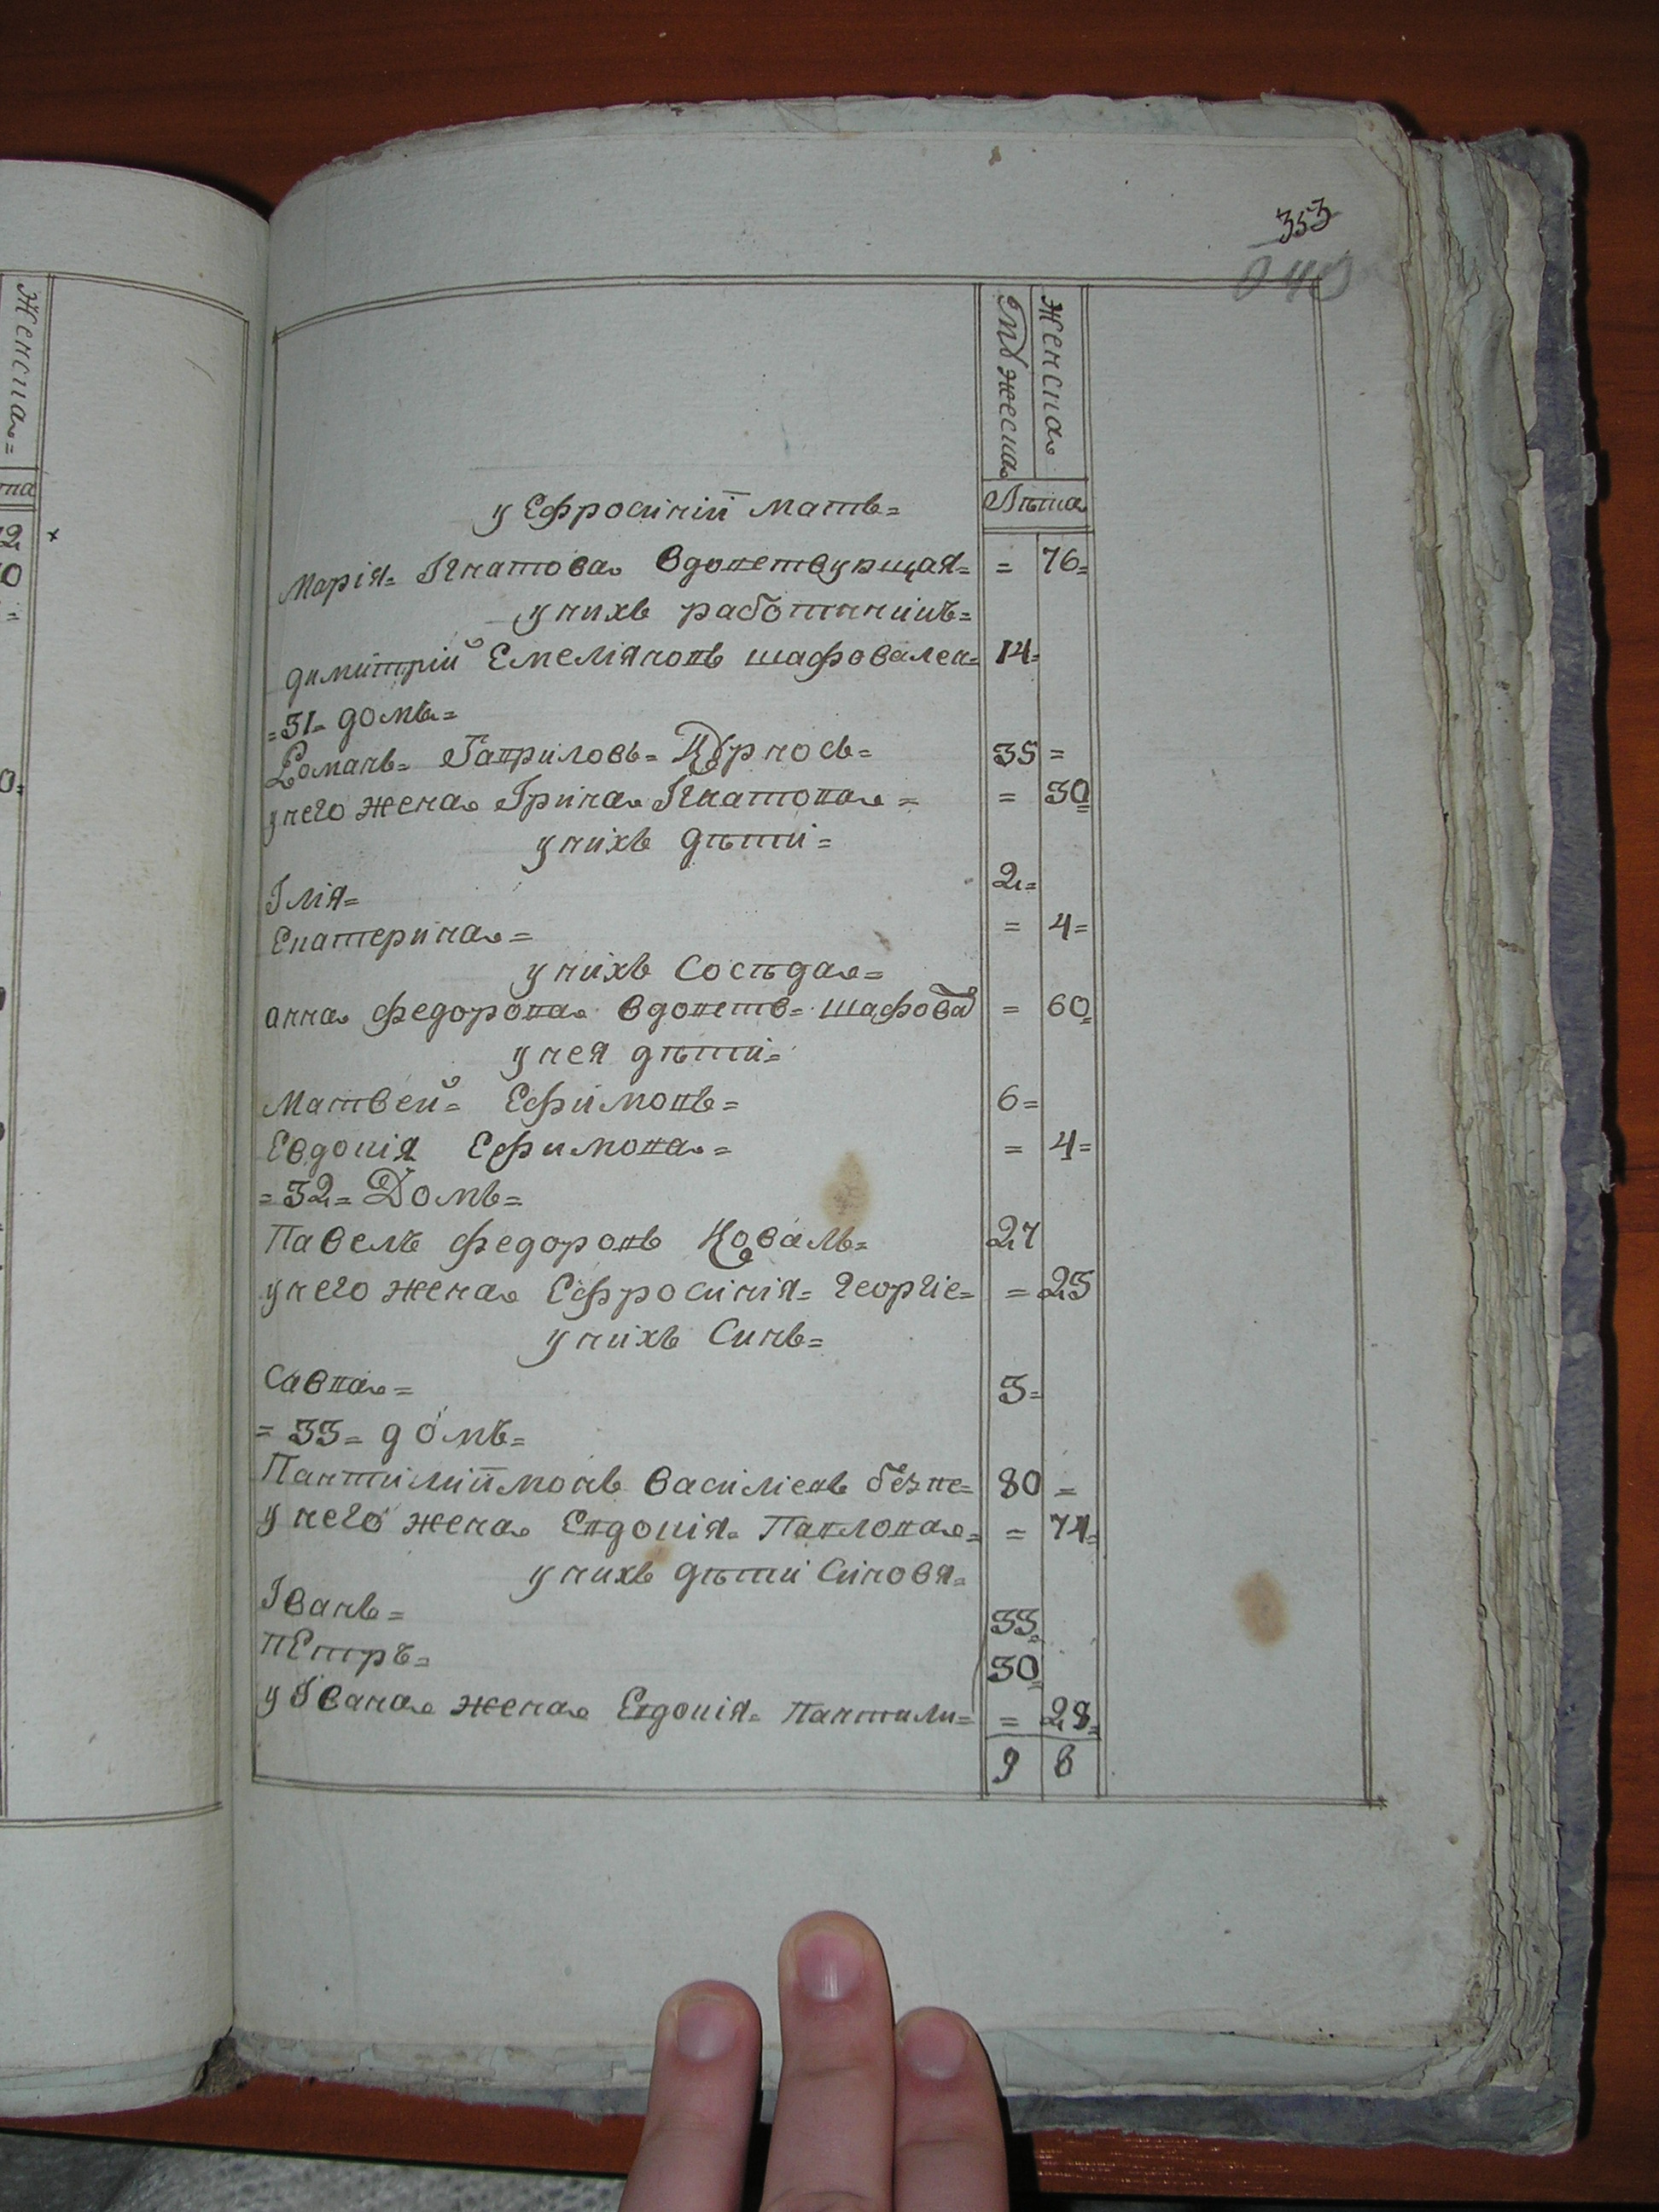 353
Женска=
Мужеска
Женска
Лѣта
у Ефросиніи мать=
Марія= Игнатова вдовствующая= = 76=
у нихъ работникъ=
Димитрій Емеліяновъ шафовален= 14=
=31= домъ=
Романъ= Гавриловъ= Курносъ= 35 =
у него жена Ирина Игнатова = = 30=
у нихъ дѣти =
Ілія= 2=
Екатерина = = 4=
у нихъ сосѣда=
анна федорова вдовств= шафовал = 60=
у нея дѣти=
Матвей= Ефимовъ= 6=
Евдокія Ефимова= = 4=
=32= Домъ=
Павелъ федоровъ Коваль= 27
у него жена Ефросинія= Георгіе= = 25
у нихъ Синъ=
Савва= 3=
=33= домъ=
Пантилиімонъ василіевъ безпе= 80 =
у него жена Евдокія= Павлова= = 74=
у нихъ дѣти Синовя=
Іванъ= 33=
пЕтръ= 30=
у Івана жена Евдокія= Пантили= = 28=
9 8